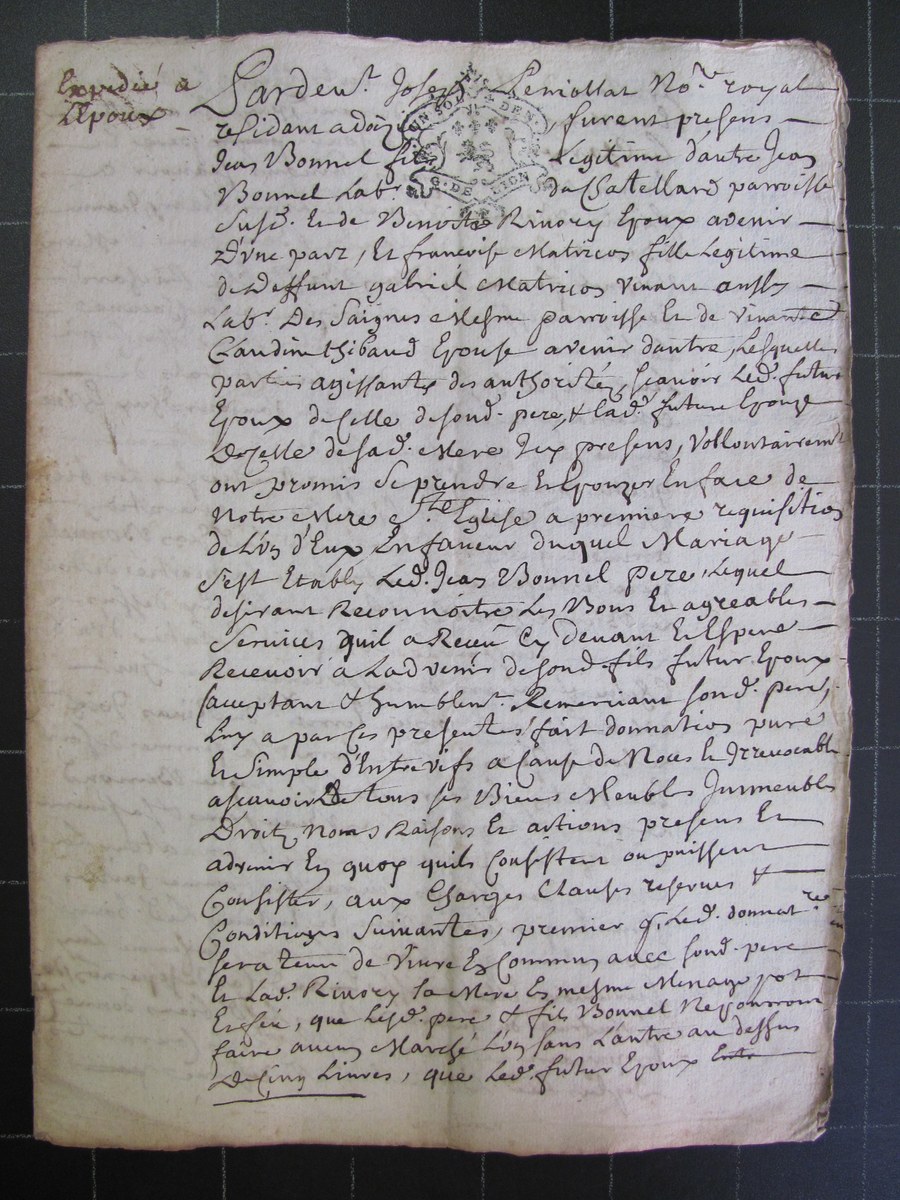 Expedié a
L'Epoux
Pardevt. Joseph No.re royal
residant a , furent presens
Jean Bonnel fils Legitime d'autre Jean
UN SOL DEN.
G. DE LION
Bonnel Labr. du Chatellard parroisse
Susd. Et de Benoite Rivory Epoux avenir
D'vne part, Et francoise Matricos fille Legitime
de Deffunt gabriel Matricos vivant aussy
Labr. Des Saignes Mesme parroisse Et de vivante
Claudine thibaud Epouse avenir dautre, Lesquelles
parties agissantes des authorités, scavoir Led. futur
Epoux de Celle de sond. pere, & Lad. future Epouze
De Celle de sad. Mere Icy presens, Vollontairemt
ont promis Se prendre Et Epouzer En face de
Notre Mere Ste Eglise a premiere requisition
de L'vn d'Eux En faveur duquel Mariage
S'est Etably Led. Jean Bonnel pere, Lequel
desirant Reconnoitre Les Bons Et agreables
Services quil a Receu Cy devant Et Espere
Recevoir a Ladvenir de sond. fils futur Epoux
acceptant & humblemt. Remerciant sond. pere,
Luy a par Ces presentes fait donnation pure
Et Simple d'Entrevifs a Cause de Noces Et Irrevocable
ascavoir De tous ses Biens Meubles Immeubles
Droits, Noms Raisons Et actions presens Et
advenir En quoy quils Consistent ou puissent
Consister, aux Charges Clauses reserves &
Conditions Suivantes, premier q. Led. donnatre
sera tenu de Vivre En Commun avec sond. pere
Et Lad. Rivory sa Mere En mesme Menage pot
Et feu, que Lesd. pere & fils Bonnel Ne pourront
faire aucun Marché L'vn sans L'autre au dessus
De Cinq Livres, que Led. futur Epoux